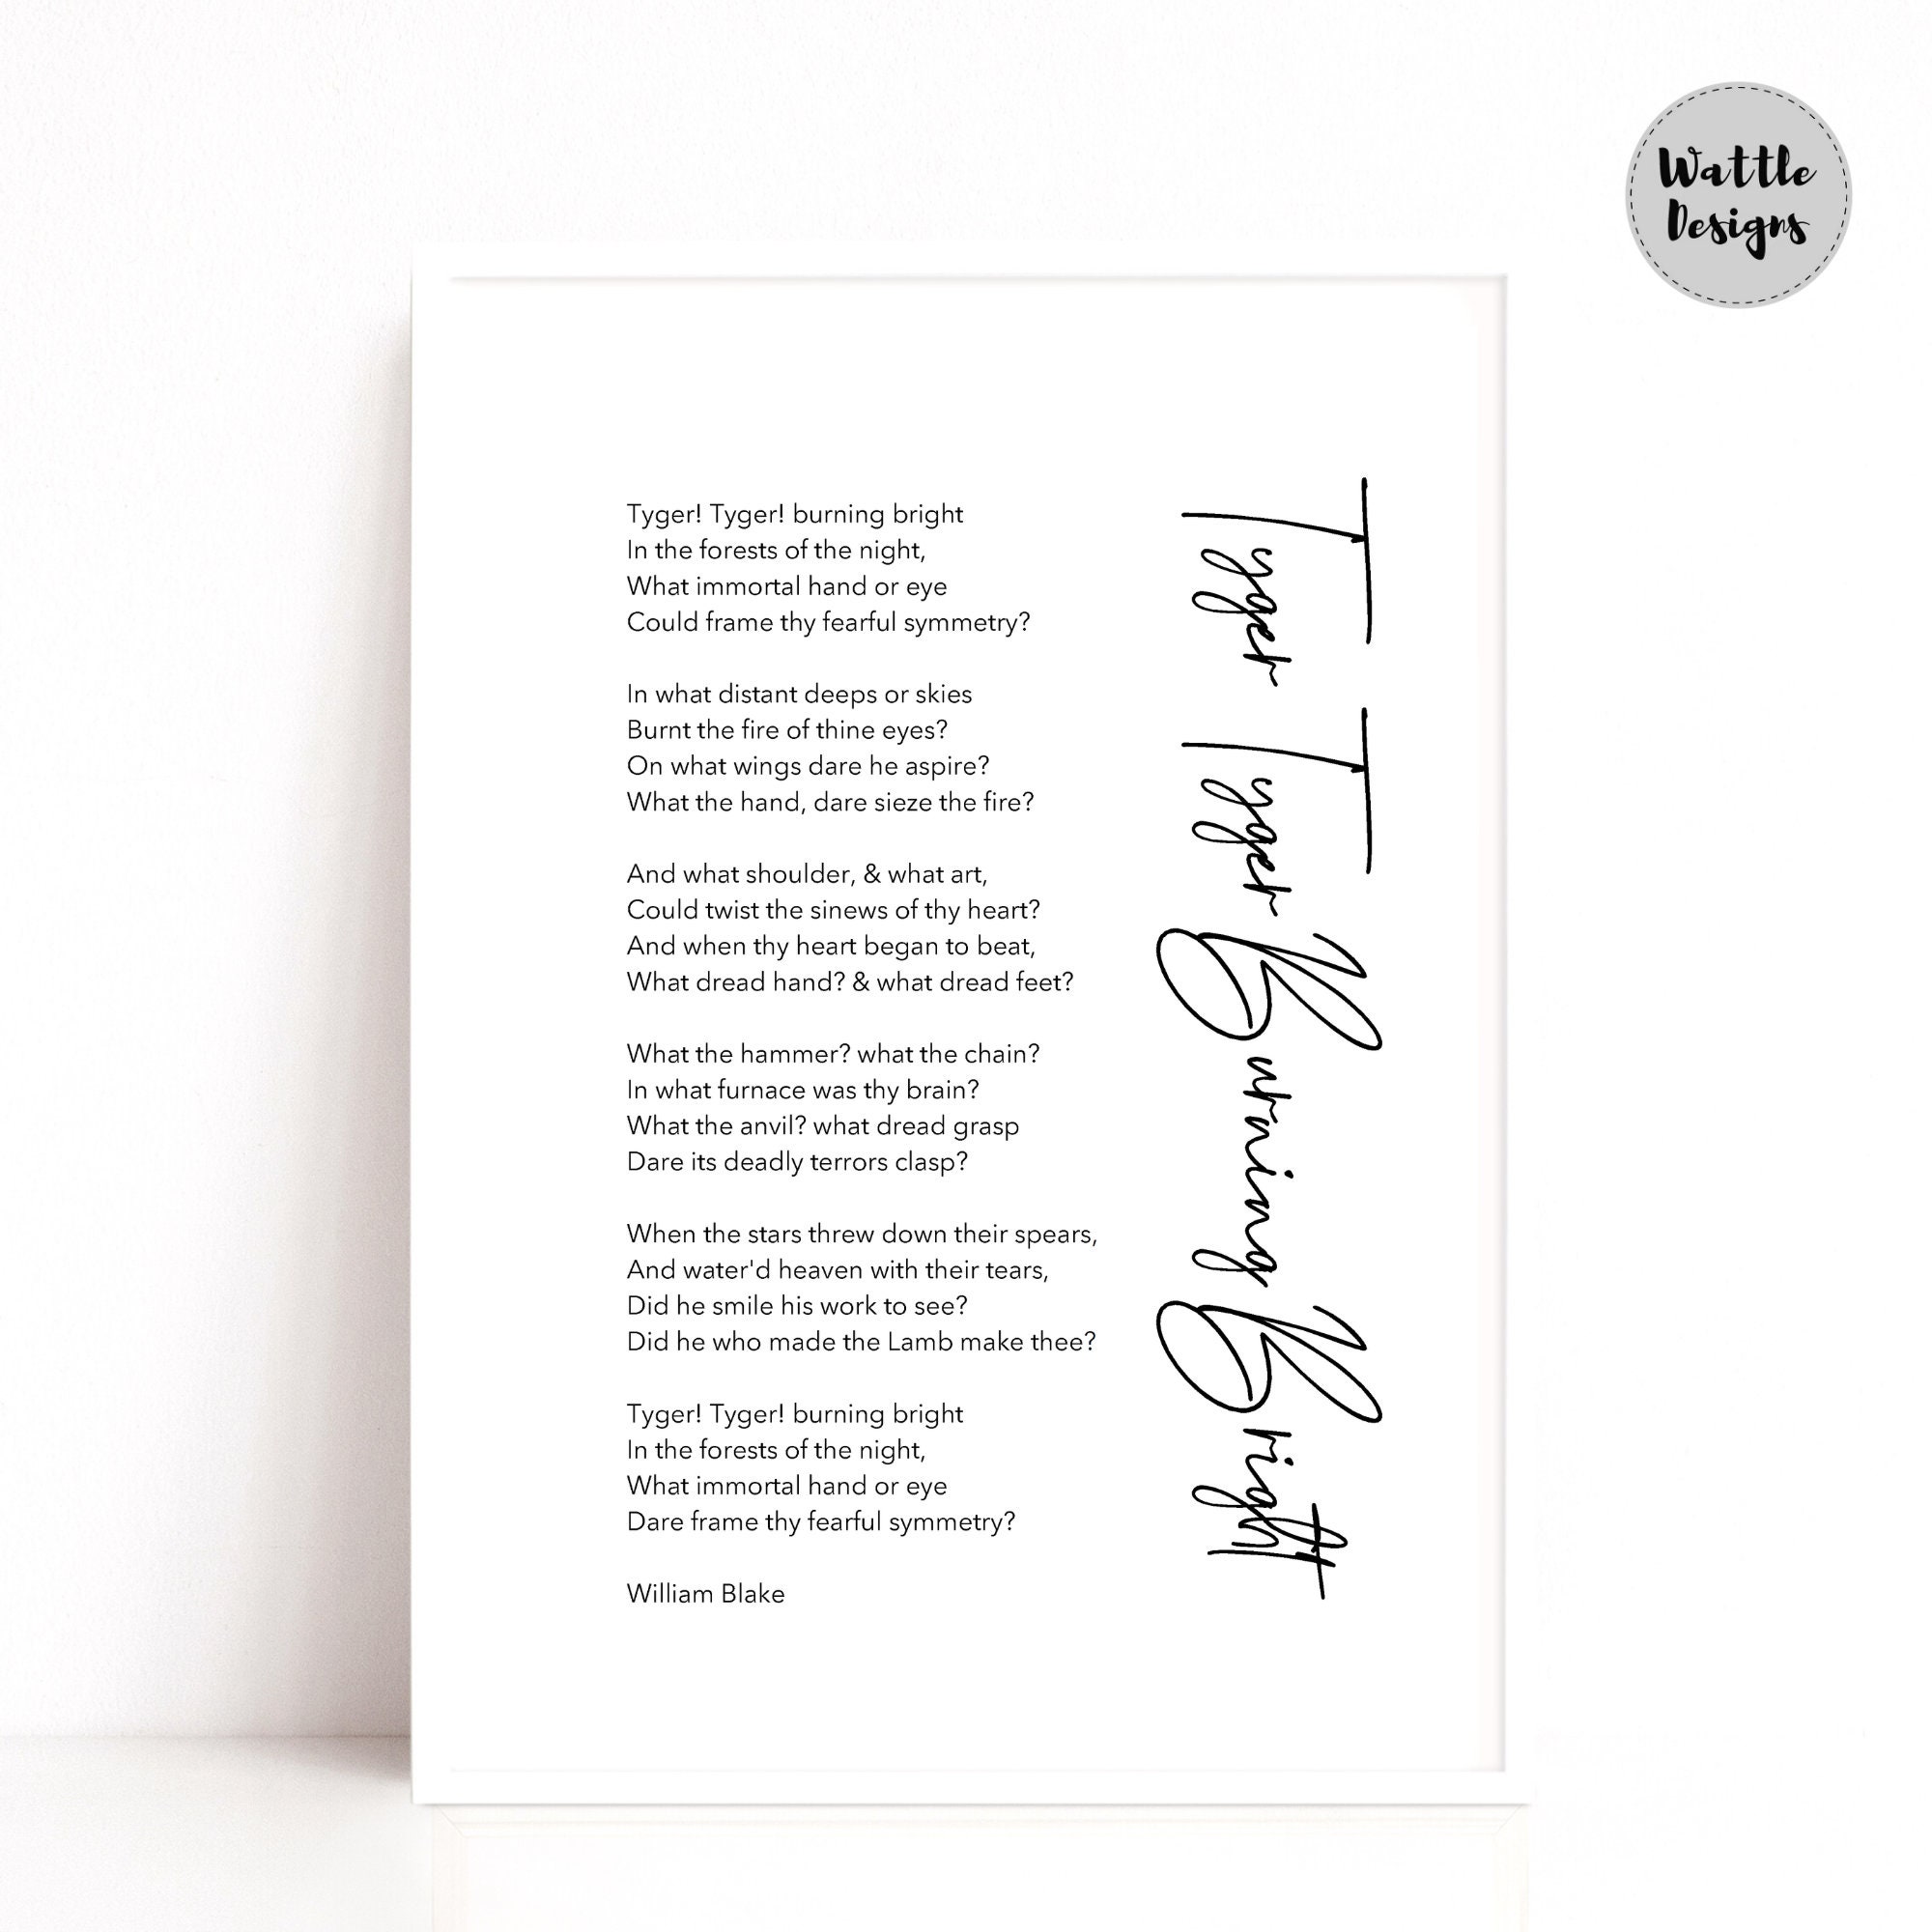 Wattle
Designs
Tyger! Tyger! burning bright
In the forests of the night,
What immortal hand or eye
Could frame thy fearful symmetry?
In what distant deeps or skies
Burnt the fire of thine eyes?
On what wings dare he aspire?
What the hand, dare sieze the fire?
And what shoulder, & what art,
Could twist the sinews of thy heart?
And when thy heart began to beat,
What dread hand? & what dread feet?
What the hammer? what the chain?
In what furnace was thy brain?
What the anvil? what dread grasp
Dare its deadly terrors clasp?
When the stars threw down their spears,
And water'd heaven with their tears,
Did he smile his work to see?
Did he who made the Lamb make thee?
Tyger! Tyger! burning bright
In the forests of the night,
What immortal hand or eye
Dare frame thy fearful symmetry?
William Blake
Tyger Tyger Burning Bright